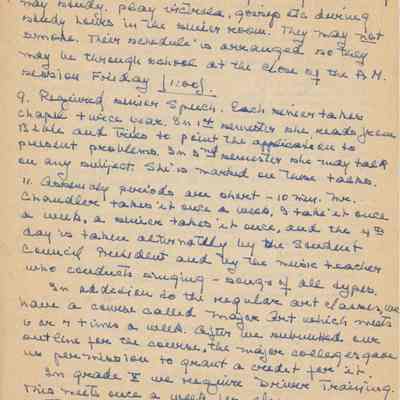 may study, play victrola, gossip etc during
study hours in the senior room. They may not
smoke. Their schedule is arranged so they
may be through school at the close of the A.M.
session Friday (1:00).
9. Required senior Speech. Each senior takes
chapel twice year. In 1st semester she reads from
Bible and tries to point the application to
present problems. In 2nd semester she may talk
on any subject. She is marked on these talks.
11. Assembly periods are short - 10 min. Mr.
Chandler takes it once a week, I take it once
a week, a senior takes it once, and the 4th
day is taken alternately by the Student
Council President and by the music teacher
who conducts singing - songs of all types.
In addition to the regular art classes, we
have a course called Major Art which meets
6 or 7 times a week. After we submitted our
outline for the course, the major colleges gave
us permission to grant a credit for it.
In grade X we require Driver Training.
This meets once a week